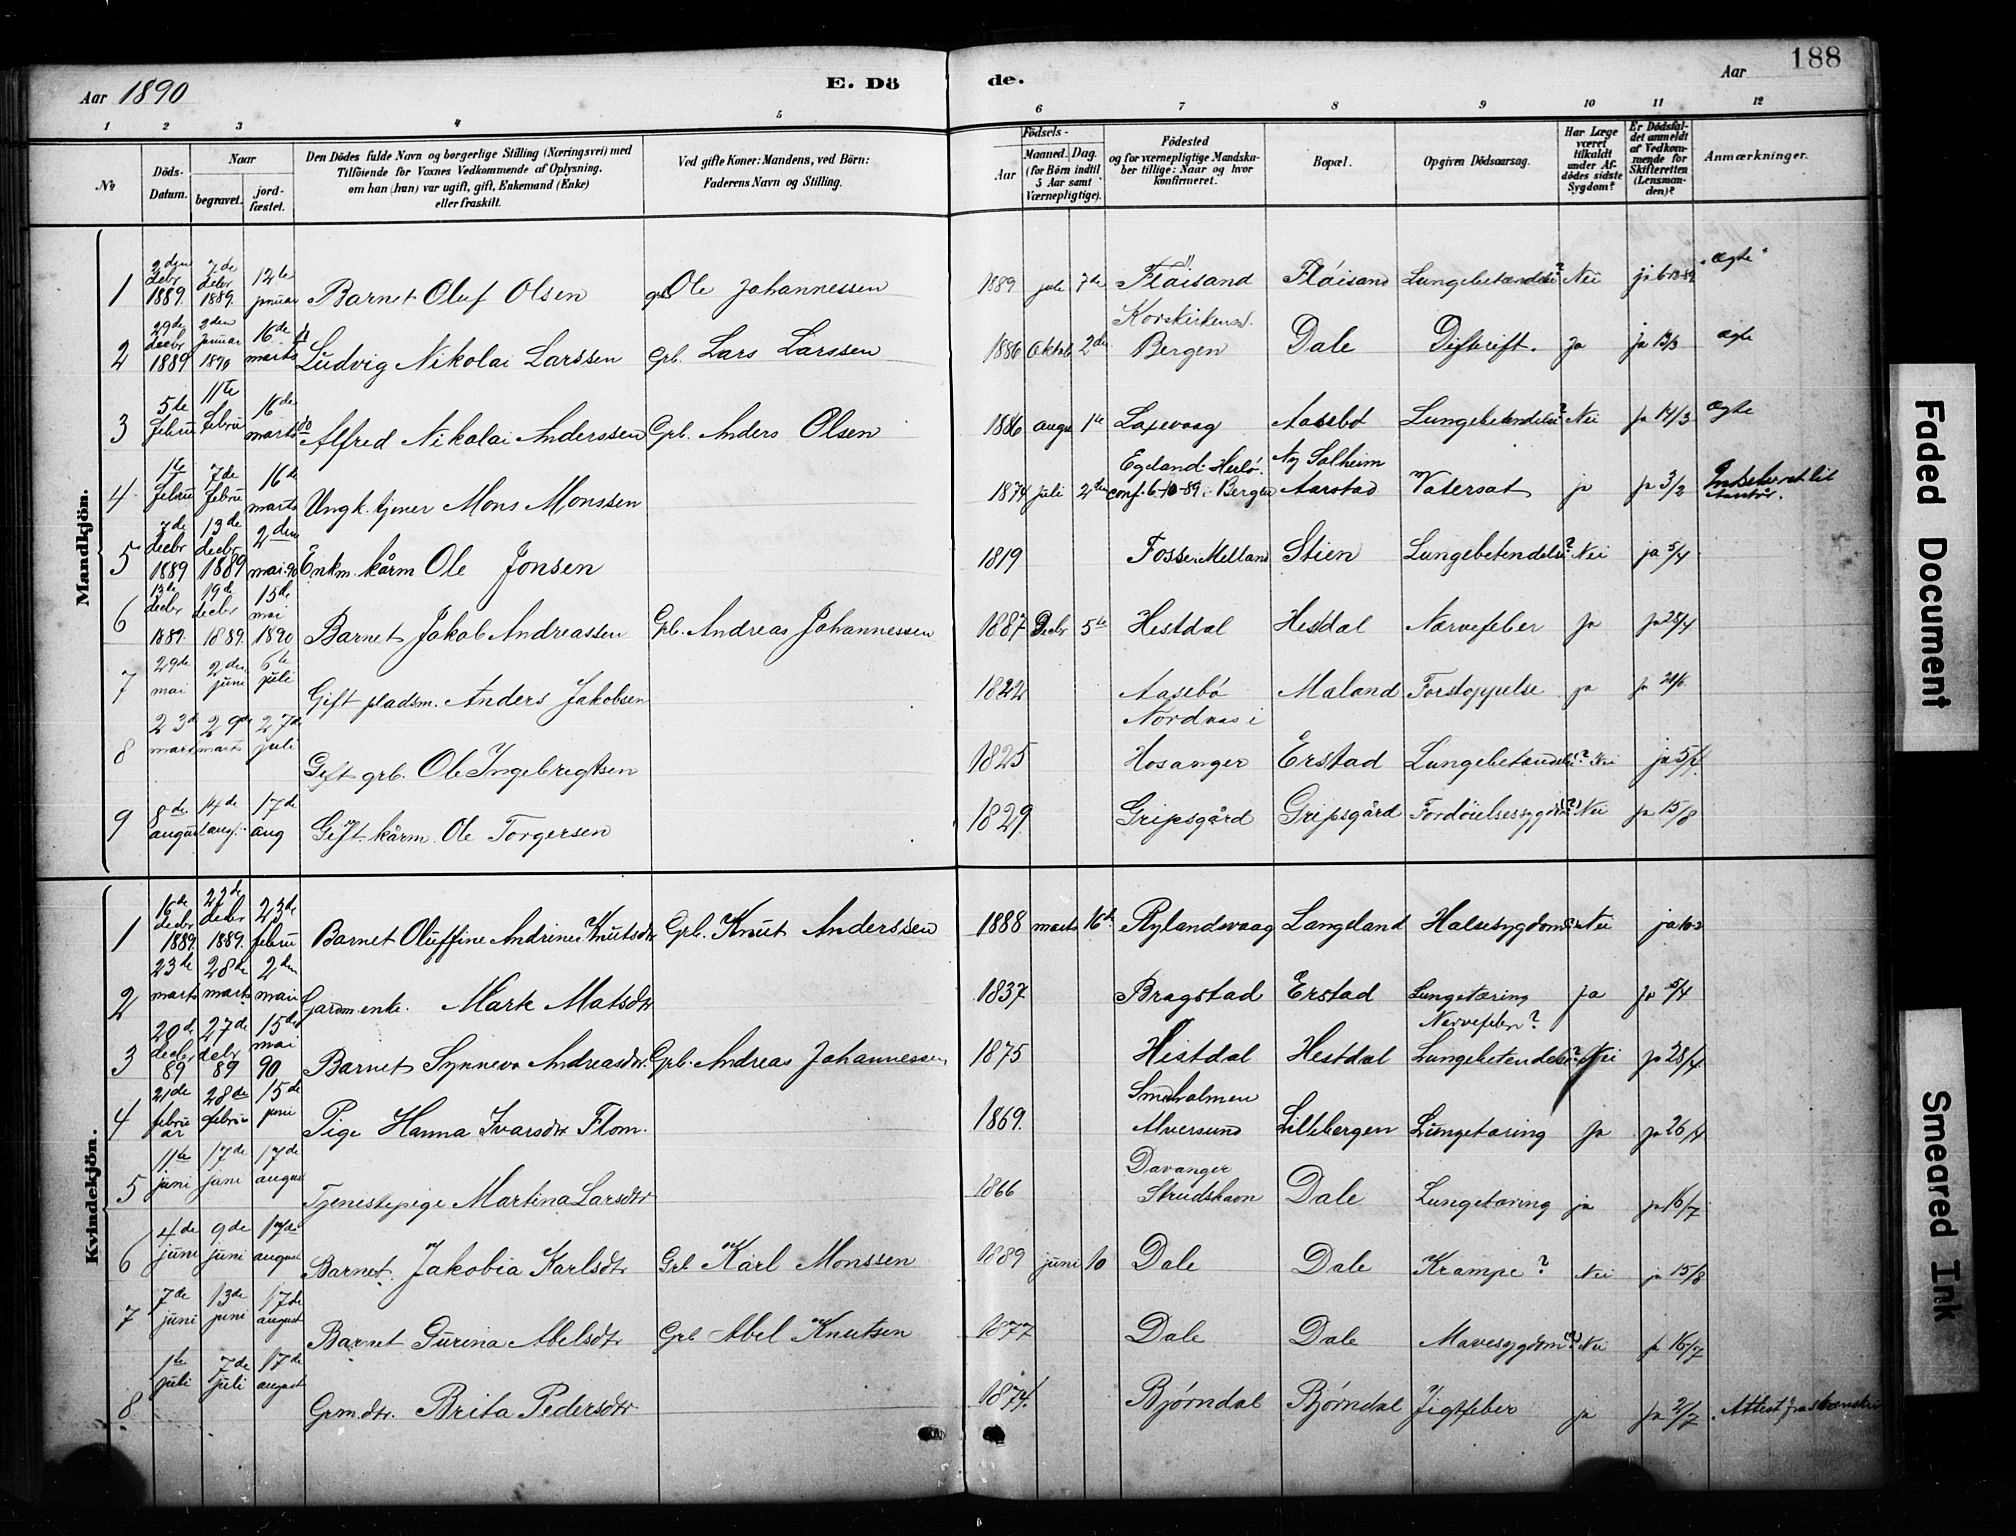 188
Aar 1890
E. Dö
de.
Aar
1 2 3 4 5 6 7 8 9 10 11 12
No
Döds-Datum.
Naar
begravet.
jordfæstet.
Den Dödes fulde Navn og borgerlige Stilling (Næringsvei) med
Tilföiende for Voxnes Vedkommende af Oplysning.
om han (hun) var ugift, gift, Enkemand (Enke)
eller fraskilt.
Ved gifte Koner: Mandens, ved Börn:
Faderens Navn og Stilling.
Födsels-
Aar
Maaned. Dag.
(for Börn indtil
5 Aar samt
Værnepligtige).
Födested
og for værnepligtige Mandska-
ber tillige: Naar og hvor
konfirmeret.
Bopæl.
Opgiven Dödsaarsag.
Har Læge
været
tilkaldt
under Af-
dödes sidste
Sygdom?
Er Dödsfal-
det anmeldt
af Vedkom-
mende for
Skifteretten
(Lensman-
den)?
Anmærkninger.
Mandkjön.
1 2den decbr 1889. 7de decbr 1889. 12te januar Barnet Oluf Olsen Ole Johannessen 1889 juli 7de Fløisand Fløisand Lungebetændelse? Nei ja 6-12-89 ægte
2 29de decbr 1889 2den januar 1890 16de marts Ludvig Nikolai Larssen Grb. Lars Larssen 1886 Oktob 2den Korskirkens. Bergen Dale Diftrift. Ja ja 13/3 ægte
3 5te febru 11te febru 16de marts Alfred Nikolai Anderssen Grb. Anders Olsen 1886 augu 1te Laxevaag Aasebø Lungebetændelse? Nei ja 14/3 ægte
4 1te febru 7de febru 16de marts Ungk. tjener Mons Monssen 1874 juli 2den Egeland. Herlø. conf. 6-10-89 i Bergen Ny Solheim Aarstad Vatersot ja ja 3/2
5 7de decbr 1889 13de decbr 1889 2den mai 90 Enkm. kårm Ole Jonsen 1819 Fosse. Melland Stien Lungebetendelse? Nei ja 5/4
6 13de decbr 1889. 19de decbr 1889. 15de mai 1890 Barnet Jakob Andreassen Grb. Andreas Johannessen 1887 Decbr 5te Hestdal Hestdal Nærvefeber Ja ja 28/4
7 29de mai 2den juni 6te juli Gift pladsm. Anders Jakobsen 1822 Aasebø Maland Forstoppelse ja ja
8 23de marts 29de marts 27de juli Gift grb. Ole Ingebregtsen 1825 Nordnas i Hosanger Erstad Lungebetændelse? Nei ja 5/4
9 8de august 14de aug. 17de aug Gift kårm Ole Torgersen 1829. Gripsgård Gripsgård Fordøielsessygdom(?) Nei ja 15/8
Kvindekjön.
1 16de decbr 1889. 22de decbr 1889. 23de febru Barnet Oluffine Andrine Knutsdtr Grb. Knut Anderssen 1888 marts 16de Rylandsvaag Langeland Halsesygdom Nei
2 23de marts 28de marts 2den mai Gardm enke. Marte Matsdtr 1837 Bragstad Erstad Lungetæring Ja ja 5/4
3 20de decbr 89 27de decbr 89 15de mai 90 Barnet Synneva Andreasdtr. Grb. Andreas Johannessen 1875 Hestdal Hestdal Nervefeber? Lungebetendelse? Nei ja 28/4
4 21de februar 28de februa 15de juni Pige Hanna Ivarsdtr Flom. 1869. Smeholmen Alversund Lillebergen Lungetæring Ja ja 26/4
5 11te juni 17de juni 17de august Tjenestepige Martina Larsdtr 1866 Davanger Strudshavn Dale Lungetæring ja ja 16/7
6 4de juni 9de juni 17de august Barnet. Jakobia Karlsdtr Grb Karl Monssen 1889 juni 10 Dale Dale Krampe? Nei ja 15/8
7 7de juni 13de juni 17de august Barnet Gurina Abelsdtr Grb Abel Knutsen 1877 Dale Dale Mavesygdom(?) Nei ja 16/7
8 1te juli 7de juli 17de august Grmdtr. Brita Pedersdtr 1874. Bjørndal Bjørndal Jigtfeber ja ja 2/7 Attest fra
Faded Document
Smeared Ink